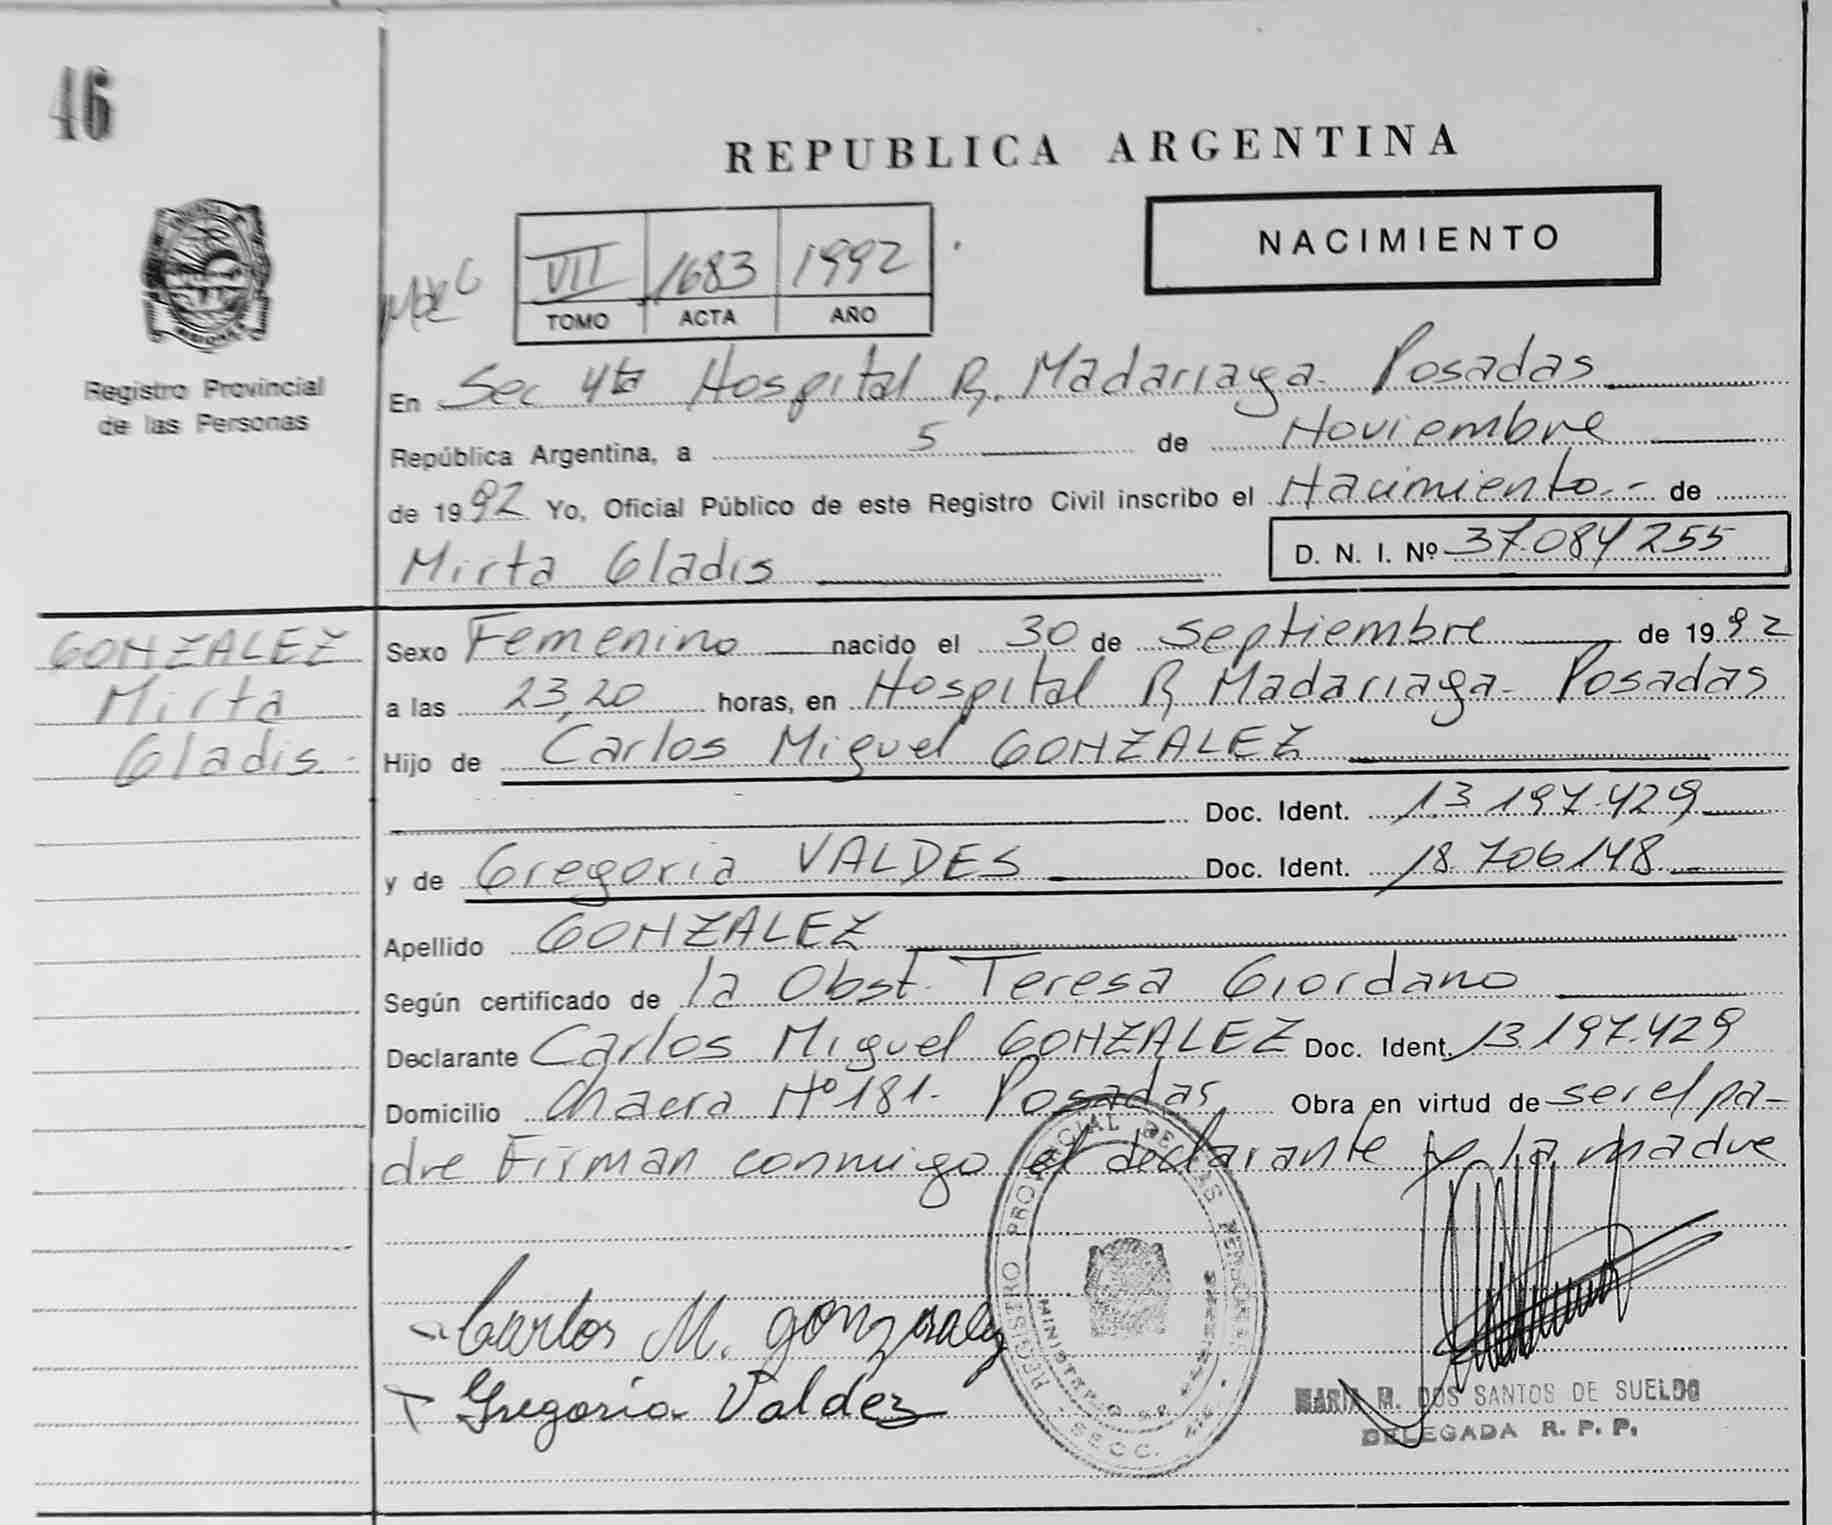 46
REPUBLICA ARGENTINA
NACIMIENTO
VII 1683 1992
TOMO ACTA AÑO
Registro Provincial
de las Personas
En Sec 4ta Hospital R. Madariaga - Posadas
República Argentina, a 5 de Noviembre
de 1992 Yo, Oficial Público de este Registro Civil inscribo el Nacimiento.- de
Mirta Gladis D. N. I. Nº 37.084.255
GONZALEZ
Mirta
Gladis.-
Sexo Femenino nacido el 30 de Septiembre de 1992
a las 23,20 horas, en Hospital R, Madariaga - Posadas
Hijo de Carlos Miguel GONZALEZ
Doc. Ident. 13.197.429
y de Gregoria VALDES Doc. Ident. 18.706.148
Apellido GONZALEZ
Según certificado de la Obst. Teresa Giordano
Declarante Carlos Miguel GONZALEZ Doc. Ident. 13.197.429
Domicilio Chacra Nº 181.- Posadas Obra en virtud de ser el pa-
dre Firman conmigo el declarante y la madre
Carlos M. gonzsalez
Gregoria Valdez
REGISTRO PROVINCIAL DE LAS PERSONAS
MINISTERIO
SECC.
MARIA M. DOS SANTOS DE SUELDO
DELEGADA R. P. P.